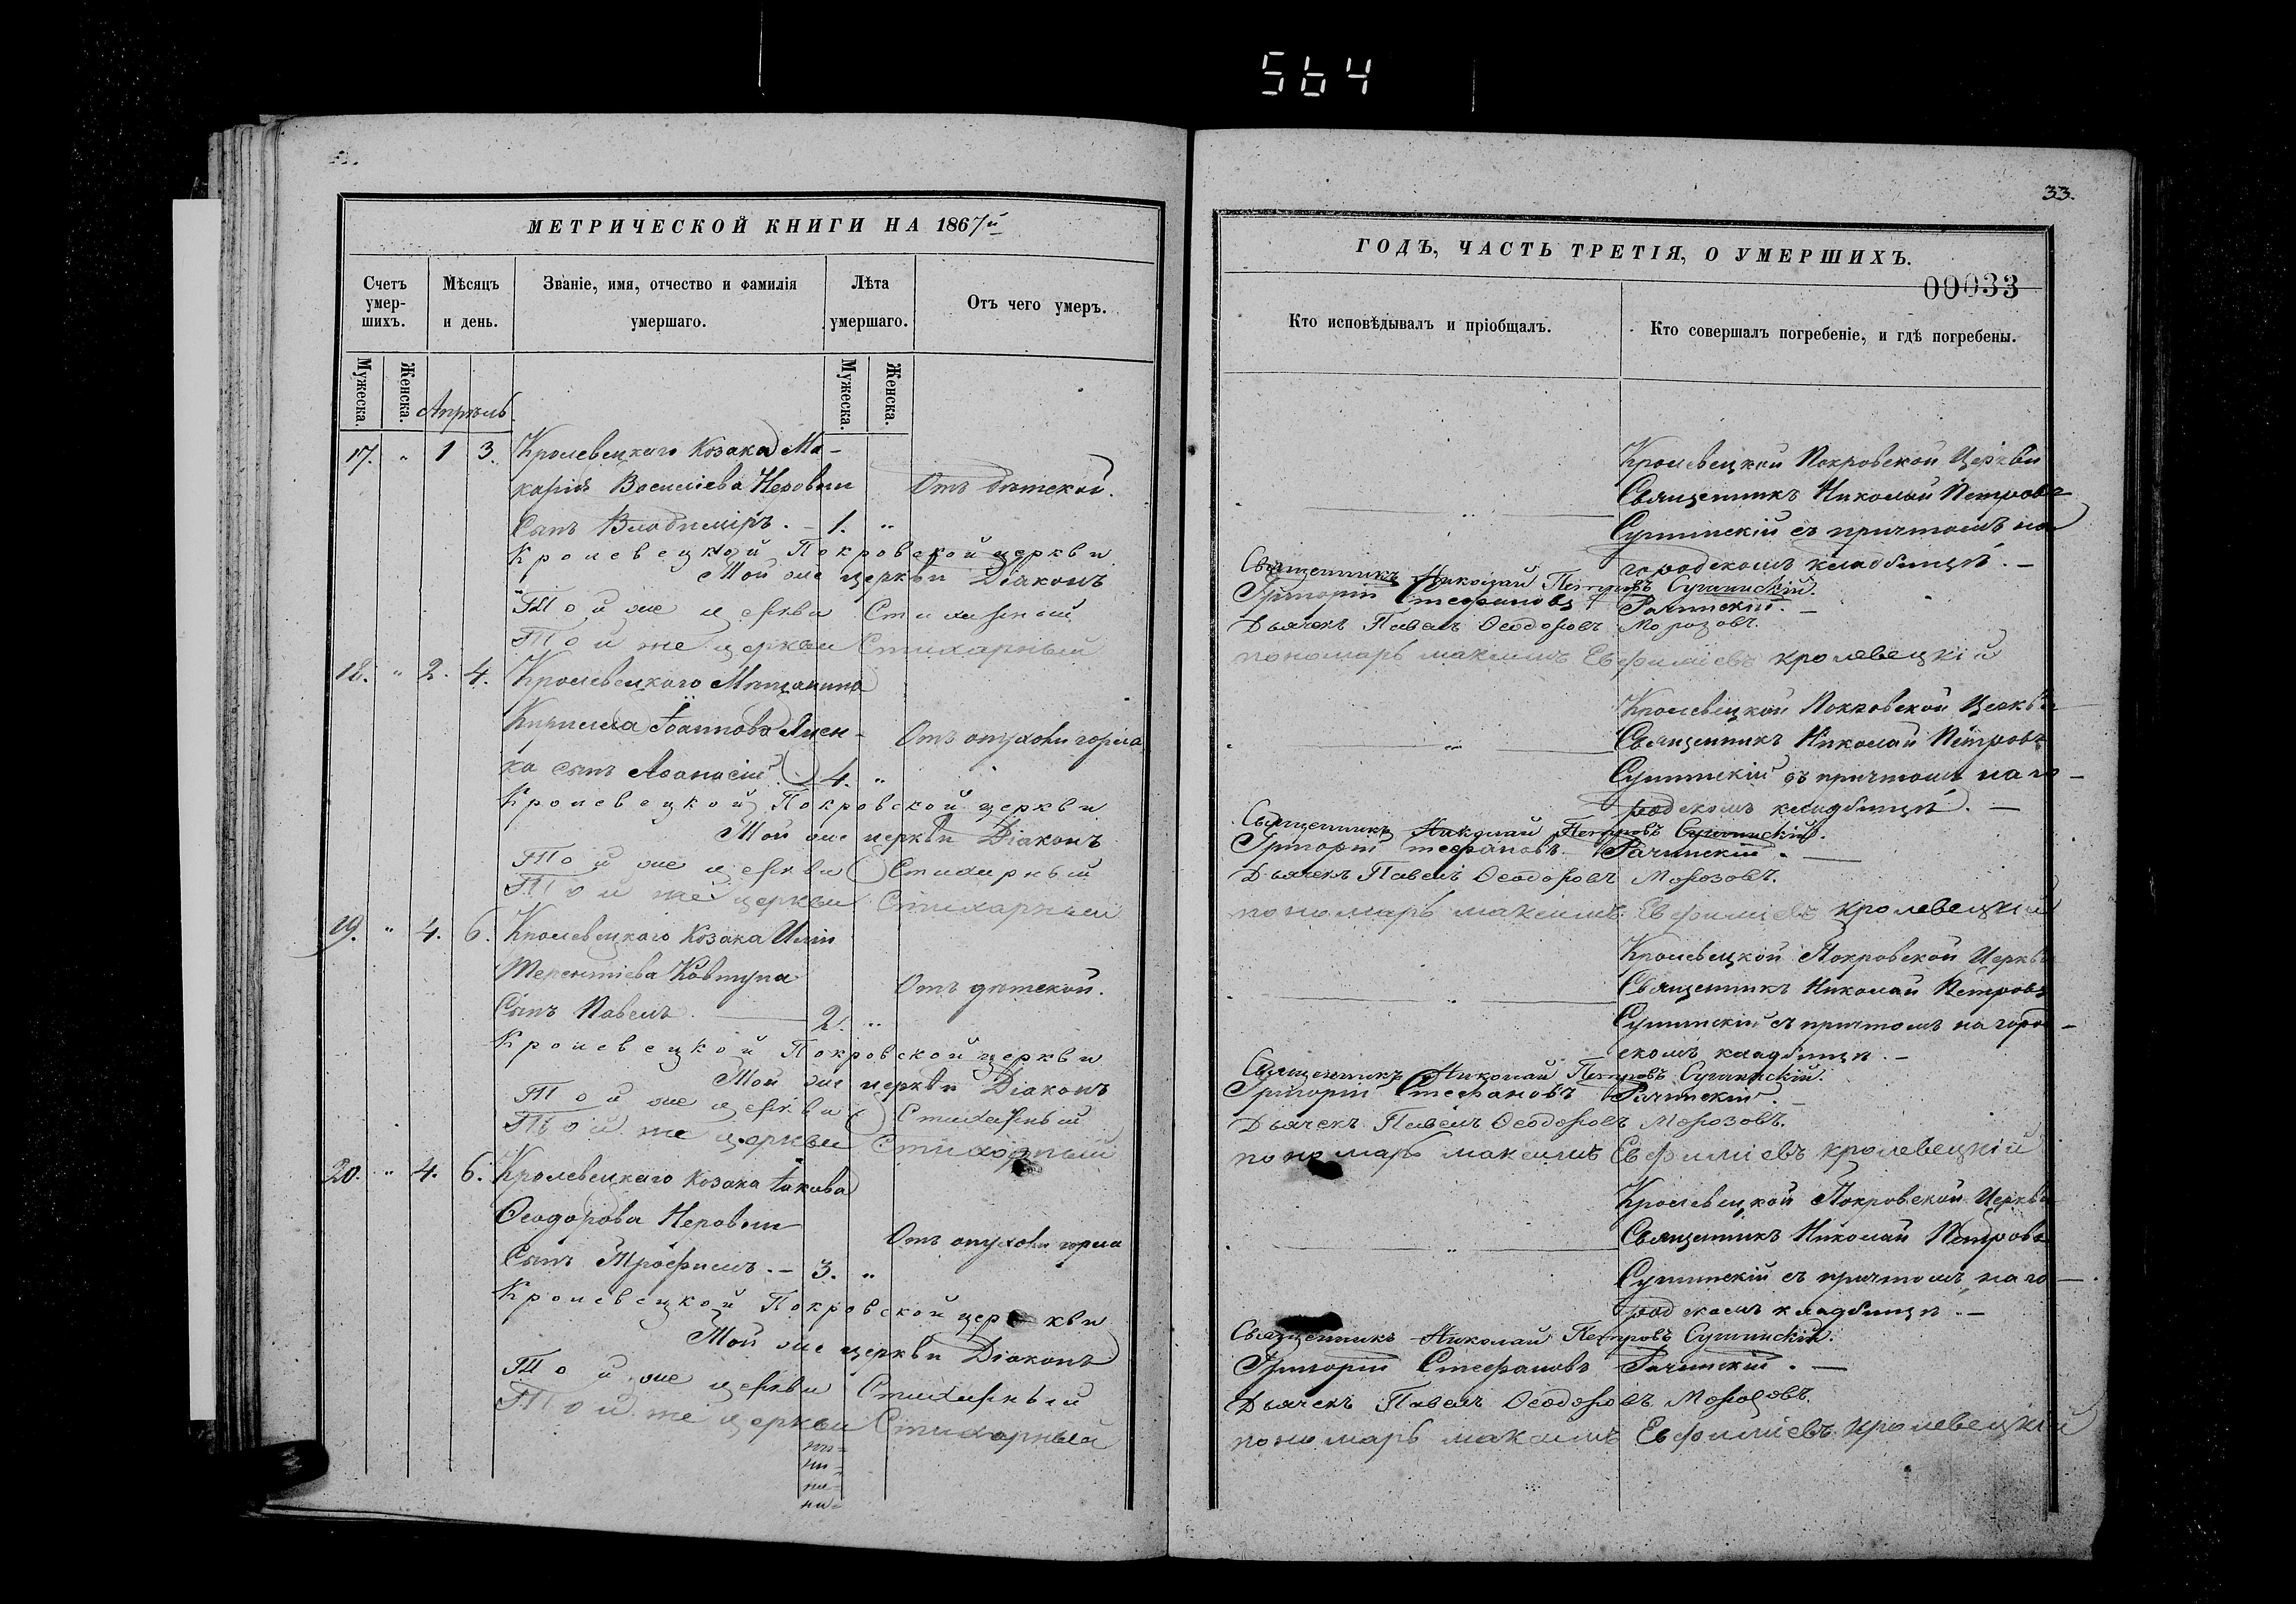 564
33.
МЕТРИЧЕСКОЙ КНИГИ НА 1867й
ГОДЪ, ЧАСТЬ ТРЕТІЯ, О УМЕРШИХЪ.
00033
Счетъ умер-шихъ.
Мѣсяцъ и день.
Званіе, имя, отчество и фамилія умершаго.
Лѣта умершаго.
Отъ чего умеръ.
Кто исповѣдывалъ и пріобщалъ.
Кто совершалъ погребеніе, и гдѣ погребены.
Мужеска.
Женска.
Мужеска.
Женска.
Апрѣль
17. " 1 3. Кролевецкаго Козака Ма-
карія Василіева Неровни
Отъ дѣтской.
Сынъ Владиміръ. – 1. "
Кролевецкой Покровской Церкви
Священникъ Николай Петровъ
съ причтомъ на
городскомъ кладбищѣ. –
Кролевецкой Покровской церкви
Священникъ Николай Петровъ
Той же церкви Діаконъ
Григорій Стефановъ
Той же церкви Стихарный
Дьячекъ Павелъ Ѳеодоровъ Морозовъ.
Той же церкви Стихарный
пономарь максимъ Евфиміевъ кролевецкій
18. " 2. 4. Кролевецкаго Мѣщанина
Кирилла Іоаннова
Отъ опухоли горла
ка сынъ Аѳанасій 4. "
Кролевецкой Покровской Церкви
Священникъ Николай Петровъ
съ причтомъ на го-
родскомъ кладбищѣ. –
Кролевецкой Покровской церкви
Священникъ Николай Петровъ
Той же церкви Діаконъ
Григорій Стефановъ
Той же церкви Стихарный
Дьячекъ Павелъ Ѳеодоровъ Морозовъ.
Той же церкви Стихарный
пономарь максимъ Евфиміевъ кролевецкій
19. " 4. 6. Кролевецкаго Козака Иліи
Терентіева Ковтуна
Отъ дѣтской.
Сынъ Павелъ. 2. "
Кролевецкой Покровской Церкви
Священникъ Николай Петровъ
съ причтомъ на город-
скомъ кладбищѣ. –
Кролевецкой Покровской церкви
Священникъ Николай Петровъ
Той же церкви Діаконъ
Григорій Стефановъ
Той же церкви Стихарный
Дьячекъ Павелъ Ѳеодоровъ Морозовъ.
Той же церкви Стихарный
пономарь максимъ Евфиміевъ кролевецкій
20. " 4. 6. Кролевецкаго Козака Іакова
Ѳеодорова Неровни
Отъ опухоли горла
Сынъ Трофимъ. – 3. "
Кролевецкой Покровской Церкви
Священникъ Николай Петровъ
съ причтомъ на го-
родскомъ кладбищѣ. –
Кролевецкой Покровской церкви
Священникъ Николай Петровъ
Той же церкви Діаконъ
Григорій Стефановъ
Той же церкви Стихарный
Дьячекъ Павелъ Ѳеодоровъ Морозовъ.
Той же церкви Стихарный
пономарь максимъ Евфиміевъ кролевецкій